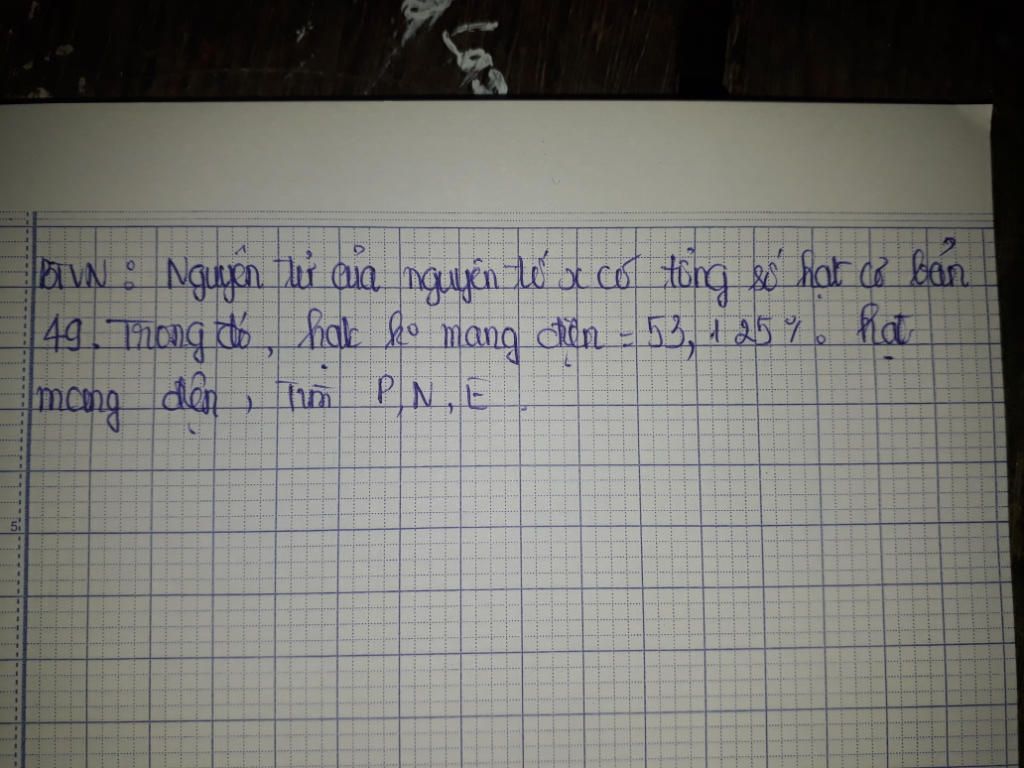 BTVN : Nguyên tử của nguyên tố x có tổng số hạt cơ bản
49. Trong đó, hạt ko mang điện = 53,125% hạt
mang điện, Tìm P, N, E.
5